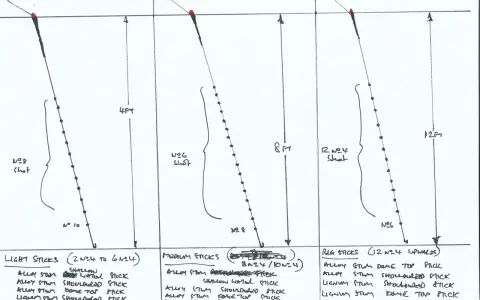 4FT
Nº8
Shot
Nº 10
LIGHT STICKS (2 Nº4 TO 6 Nº4)
SHALLOW
ALLOY STEM WATER STICK
ALLOY STEM SHOULDERED STICK
ALLOY STEM DOME TOP STICK
LIGNUM STEM SHOULDERED STICK
8FT
Nº6
Shot
Nº8
MEDIUM STICKS
8 Nº4 / 10 Nº4)
ALLOY STEM
SHALLOW WATER STICK
ALLOY STEM SHOULDERED STICK
ALLOY STEM DOME TOP STICK
12FT
12 Nº4
Shot
Nº6
BIG STICKS (12 Nº4 UPWARDS)
ALLOY STEM DOME TOP STICK
ALLOY STEM SHOULDERED STICK
LIGNUM STEM SHOULDERED STICK
LIGNUM STEM DOME TOP STICK